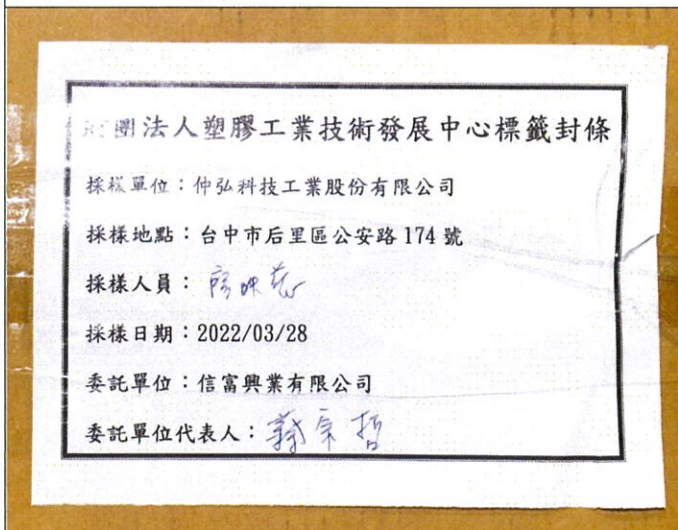 財團法人塑膠工業技術發展中心標籤封條
採樣單位：仲弘科技工業股份有限公司
採樣地點：台中市后里區公安路 174 號
採樣人員：
採樣日期：2022/03/28
委託單位：信富興業有限公司
委託單位代表人：